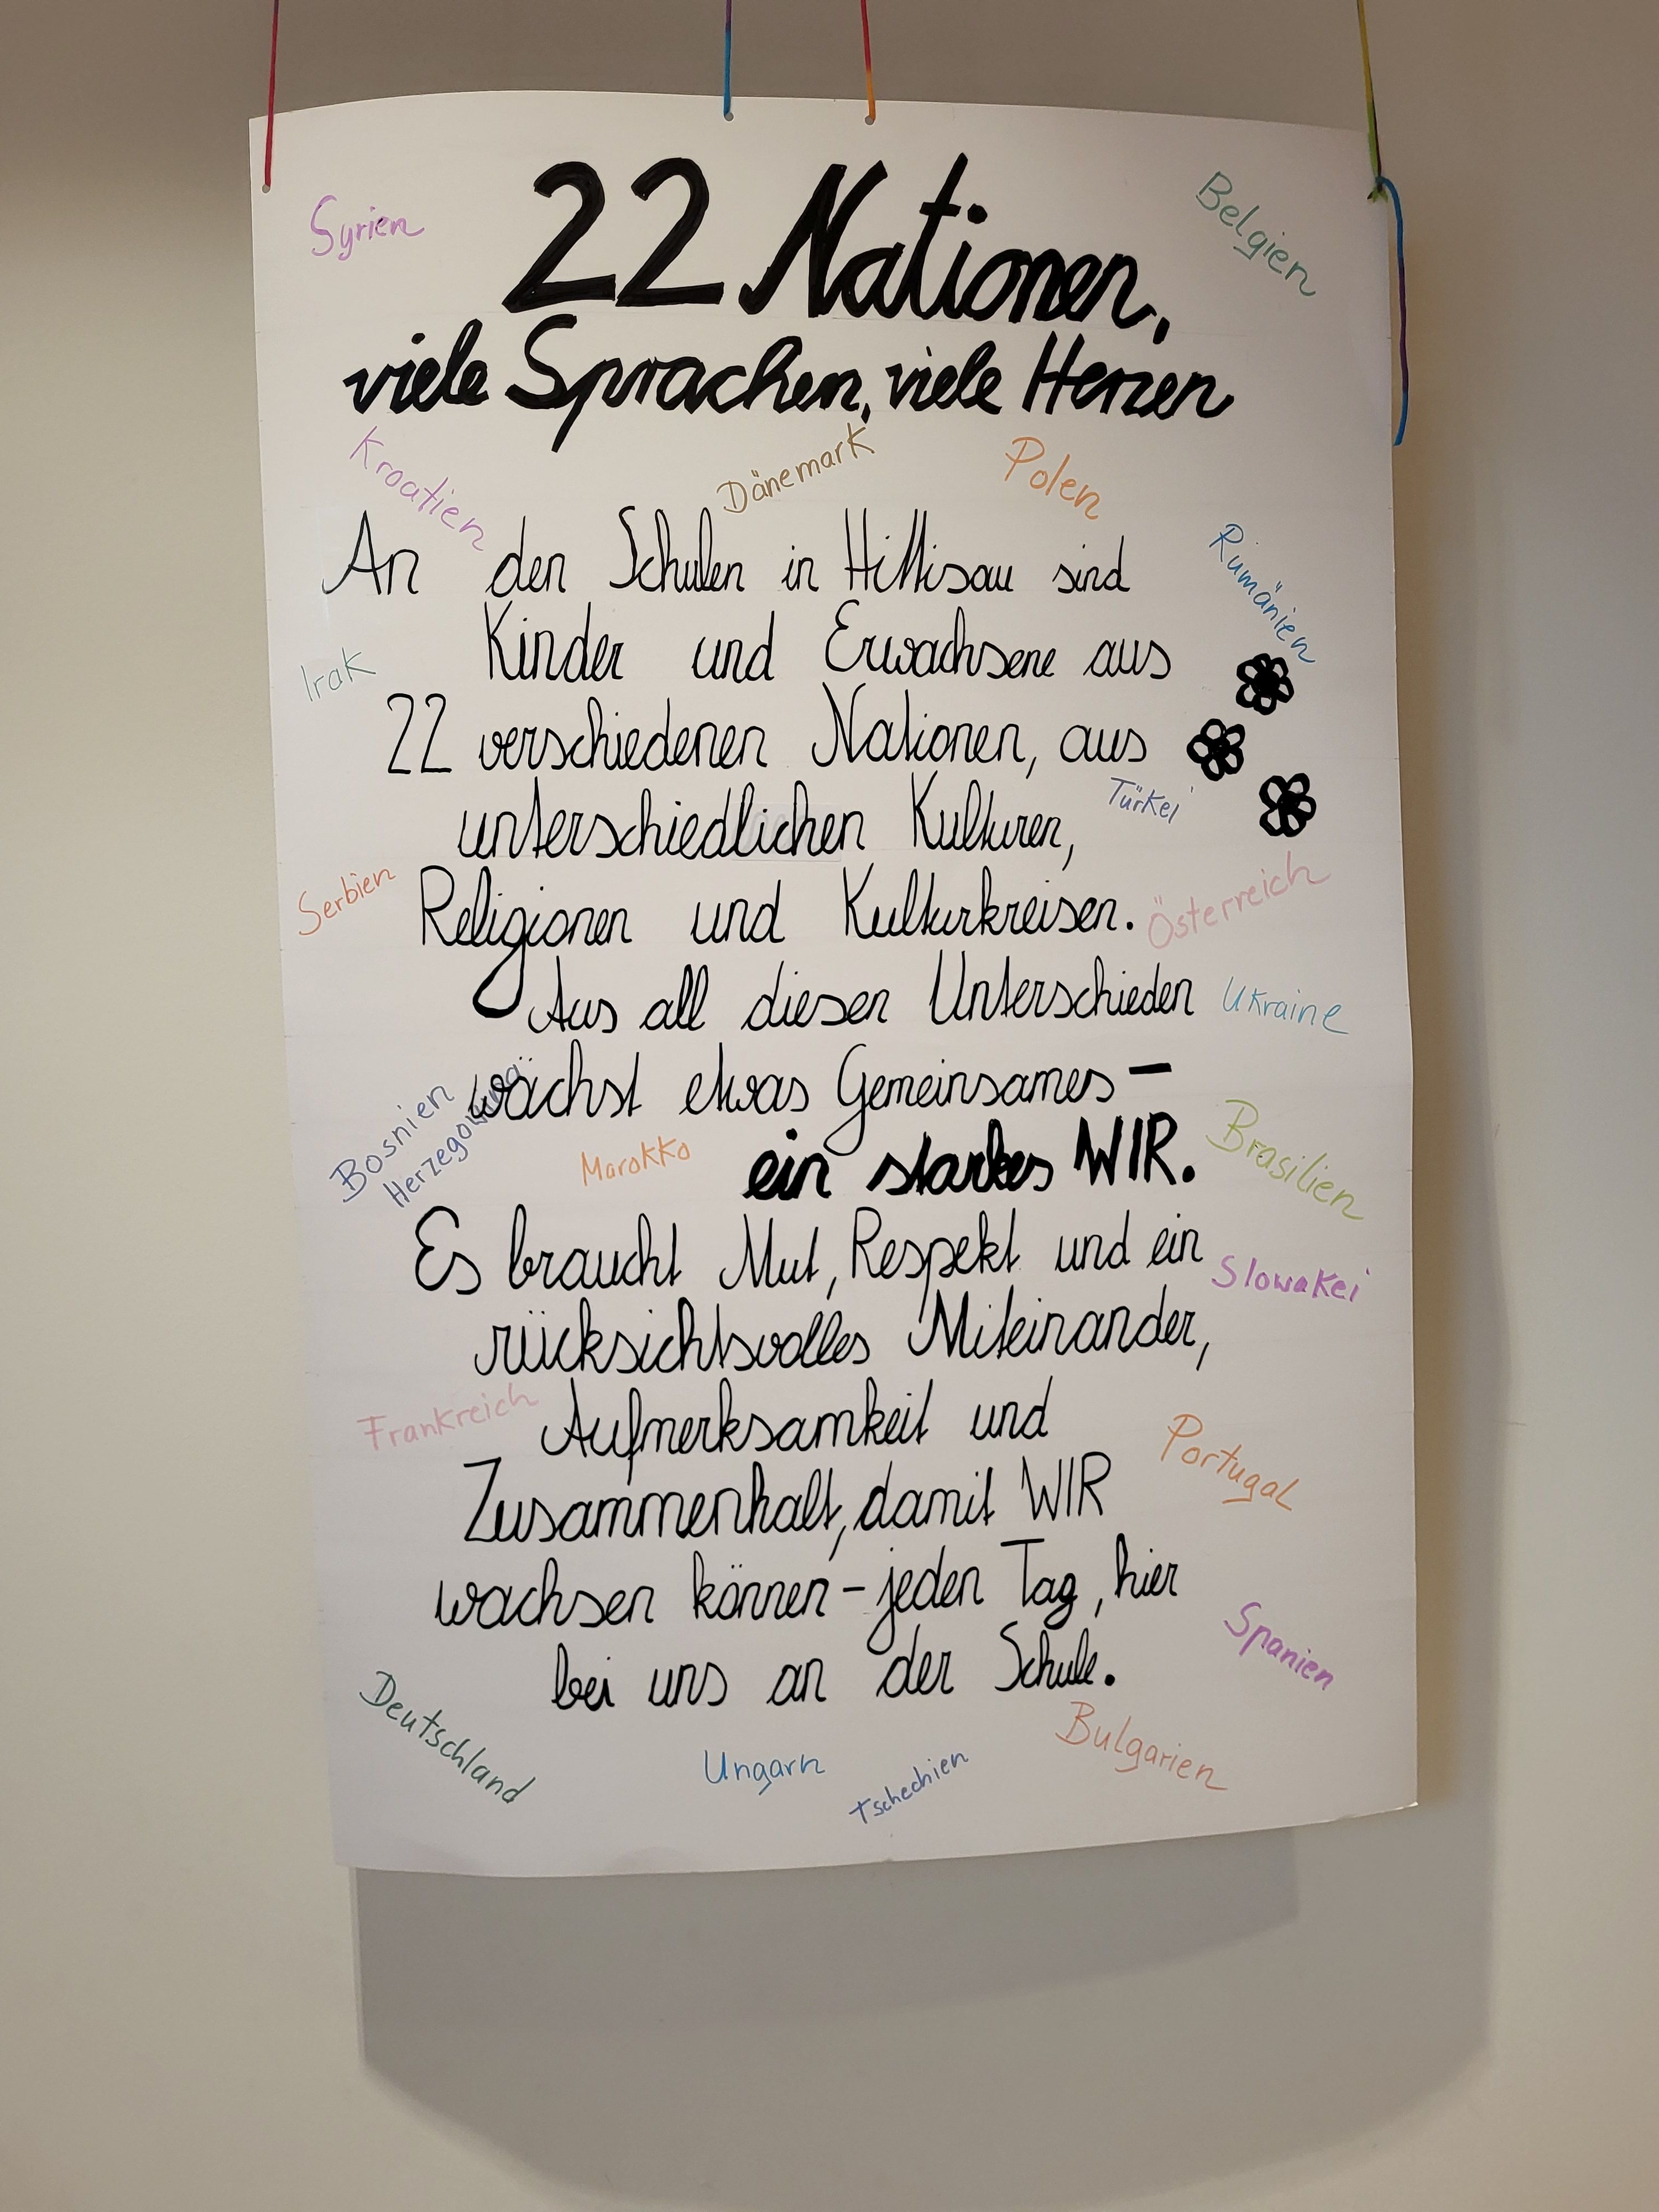 Syrien
Belgien
22 Nationen,
viele Sprachen, viele Herzen
Kroatien
Dänemark
Polen
An den Schulen in Hittisau sind
Rumänien
Kinder und Erwachsene aus
Irak
22 verschiedenen Nationen, aus
Türkei
unterschiedlichen Kulturen,
Serbien
Religionen und Kulturkreisen.
Österreich
Aus all diesen Unterschieden
Ukraine
wächst etwas Gemeinsames –
Bosnien
Herzegowina
Marokko
ein starkes WIR.
Brasilien
Es braucht Mut, Respekt und ein
Slowakei
rücksichtsvolles Miteinander,
Frankreich
Aufmerksamkeit und
Portugal
Zusammenhalt, damit WIR
wachsen können – jeden Tag, hier
Spanien
bei uns an der Schule.
Deutschland
Ungarn
Tschechien
Bulgarien